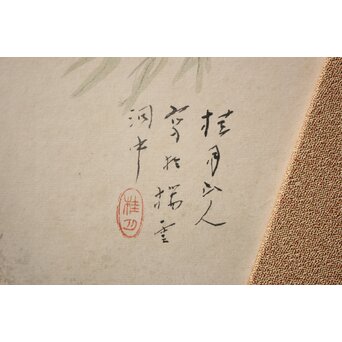 桂月山人
寫於棲雲
洞中
桂月